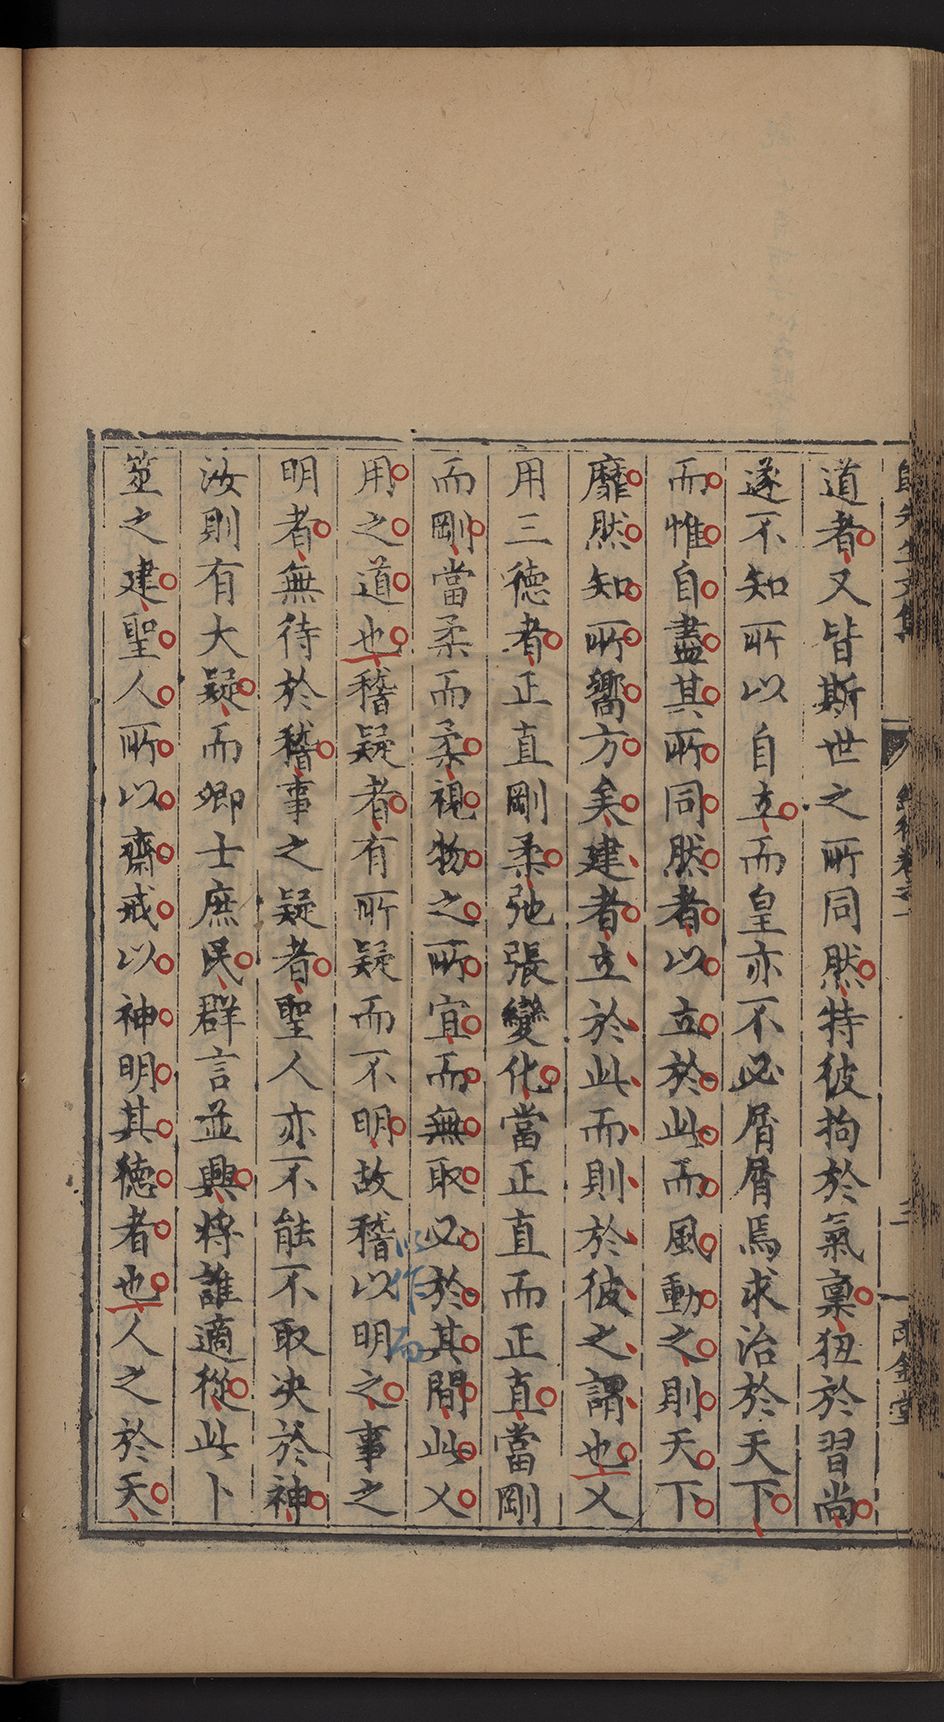 道者又皆斯世之所同然特彼拘於氣稟狃於習尚
遂不知所以自立而皇亦不必屑屑焉求治於天下
而惟自盡其所同然者以立於此而風動之則天下
靡然知所嚮方矣建者立於此而則於彼之謂也乂
用三德者正直剛柔弛張變化當正直而正直當剛
而剛當柔而柔視物之所宜而無取必於其間此乂
用之道也稽疑者有所疑而不明故稽以明之事之
以作而
明者無待於稽事之疑者聖人亦不能不取决於神
汝則有大疑而卿士庶民群言並興將誰適從此卜
筮之建聖人所以齋戒以神明其德者也人之於天